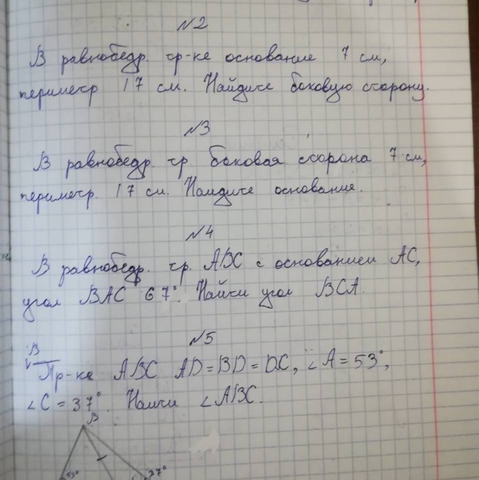 №2
В равнобедр. тр-ке основание 7 см,
периметр 17 см. Найдите боковую сторону.
№3
В равнобедр. тр. боковая сторона 7 см,
периметр 17 см. Найдите основание.
№4
В равнобедр. тр. ABC с основанием AC,
угол BAC 67°. Найти угол BCA.
№5
В
Тр-ке ABC AD=BD=DC, ∠A=53°,
∠C=37°. Найти ∠ABC.
B
53° 37°